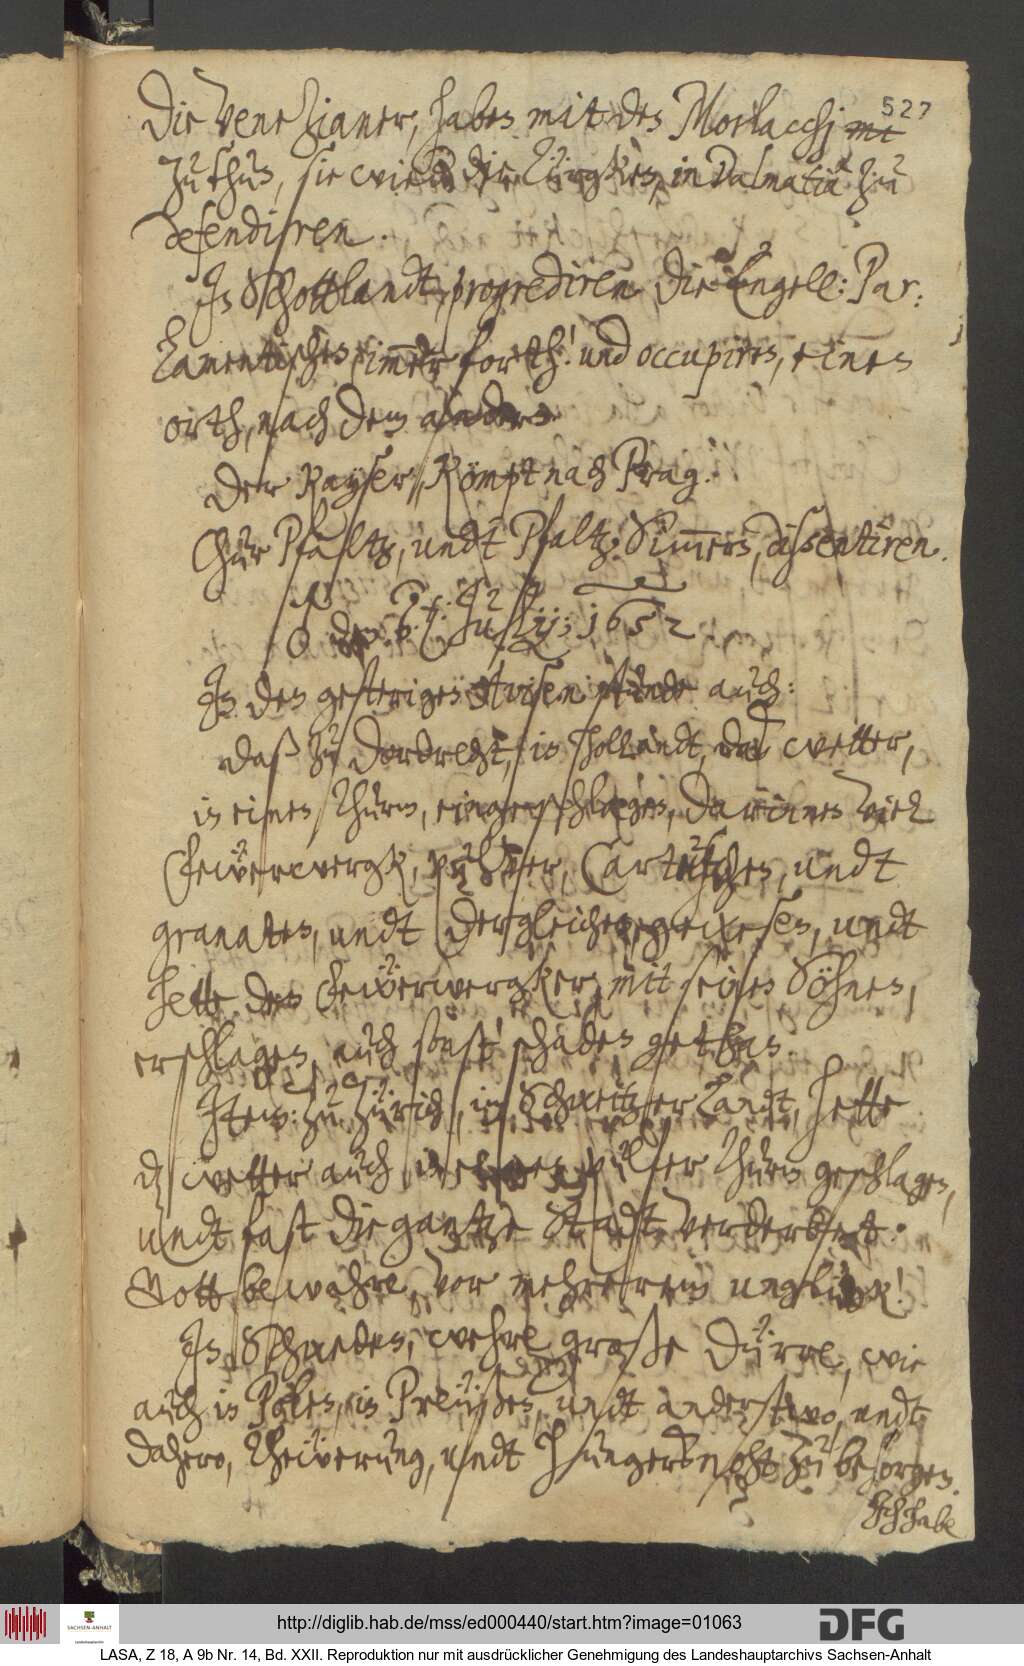 527
Die Venezianer, haben mit den Morlacchj
zu thun, sie wieder die Türgken, in Dalmatia zu
defendiren.
In Schottlandt, progrediren die Engell: Par:
lamentischen, immer forth! und occupiren, einen
orth, nach dem andern.
Der Kayser, kömpt nach Prag.
Chur Pfaltz, undt Pfaltz Simmern, dissentiren.
♂ den: 6. Julij; 1652.
In den gesterigen Avisen stunde auch:
daß zu Dordrecht, in Hollandt, daß wetter,
in einen Thurm, eingeschlagen, darinnen viel
Feẅerwergk, pulver, Cartuschen, undt
granaten, undt dergleichen gewesen, undt
hette den Feẅerwergker, mit seinen Söhnen,
erschlagen, auch sonst schaden gethan.
Item: zu Zürich, im Schweitzer Landt, hette
daß wetter auch in einen pulver Thurm geschlagen,
undt fast die gantze Stadt, verderbett.
Gott bewahre, vor mehrerem unglück!
In Schweden, wehre große dürre, wie
auch in Polen, in Preüßen, undt anderstwo, undt
dahero, Theẅerung, undt Hungersnoht zu besorgen.
Ich habe
http://diglib.hab.de/mss/ed000440/start.htm?image=01063
SACHSEN-ANHALT
DFG
LASA, Z 18, A 9b Nr. 14, Bd. XXII. Reproduktion nur mit ausdrücklicher Genehmigung des Landeshauptarchivs Sachsen-Anhalt